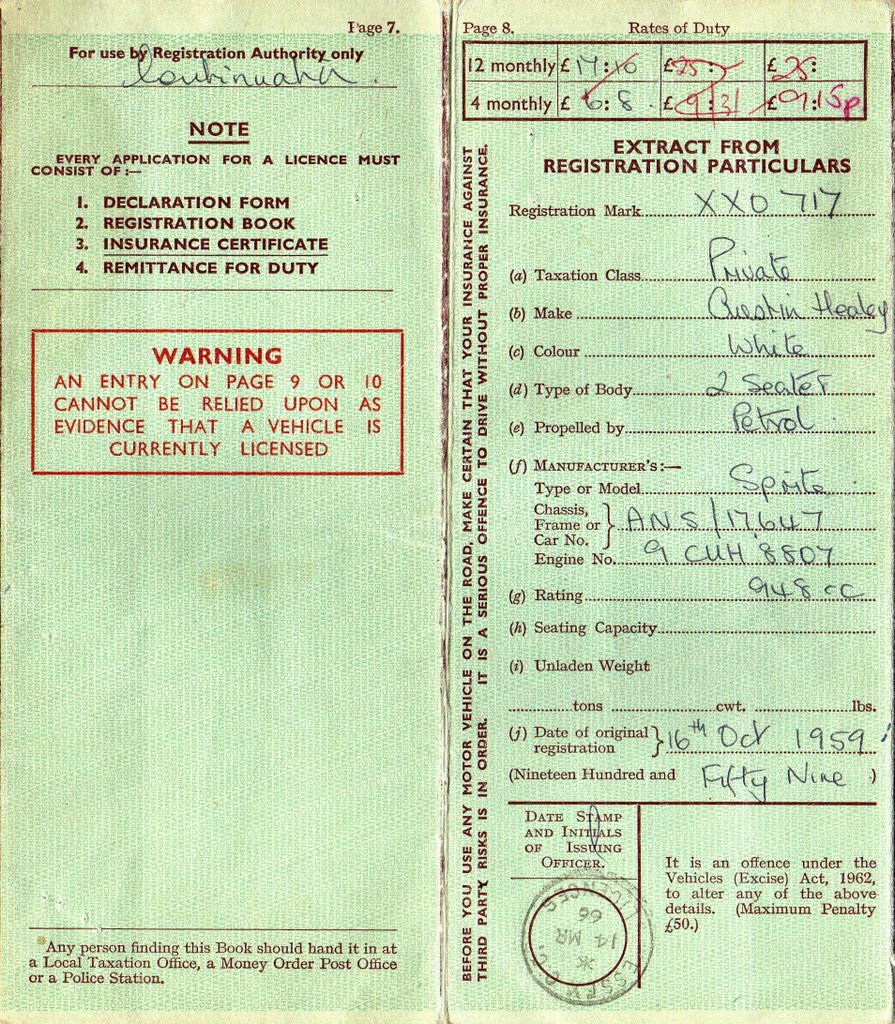 Page 7.
For use by Registration Authority only
Continuation.
NOTE
EVERY APPLICATION FOR A LICENCE MUST
CONSIST OF :—
1. DECLARATION FORM
2. REGISTRATION BOOK
3. INSURANCE CERTIFICATE
4. REMITTANCE FOR DUTY
WARNING
AN ENTRY ON PAGE 9 OR 10
CANNOT BE RELIED UPON AS
EVIDENCE THAT A VEHICLE IS
CURRENTLY LICENSED
Any person finding this Book should hand it in at
a Local Taxation Office, a Money Order Post Office
or a Police Station.
Page 8. Rates of Duty
12 monthly £ 17 : 10 £ 25 : £ 25 :
4 monthly £ 6 : 8 . £ 9 : 3/ £ 9 : 15p
BEFORE YOU USE ANY MOTOR VEHICLE ON THE ROAD, MAKE CERTAIN THAT YOUR INSURANCE AGAINST
THIRD PARTY RISKS IS IN ORDER. IT IS A SERIOUS OFFENCE TO DRIVE WITHOUT PROPER INSURANCE.
EXTRACT FROM
REGISTRATION PARTICULARS
Registration Mark XXO 717
(a) Taxation Class Private
(b) Make Austin Healey
(c) Colour White
(d) Type of Body 2 Seater
(e) Propelled by Petrol
(f) MANUFACTURER'S :—
Type or Model Sprite
Chassis,
Frame or
Car No. } AN5/17647
Engine No. 9 CUH 8807
(g) Rating 948 cc
(h) Seating Capacity
(i) Unladen Weight
tons cwt. lbs.
(j) Date of original
registration } 16th Oct 1959
(Nineteen Hundred and Fifty Nine )
DATE STAMP
AND INITIALS
OF ISSUING
OFFICER.
ESSEX LICENCES
14 MR
66
It is an offence under the
Vehicles (Excise) Act, 1962,
to alter any of the above
details. (Maximum Penalty
£50.)